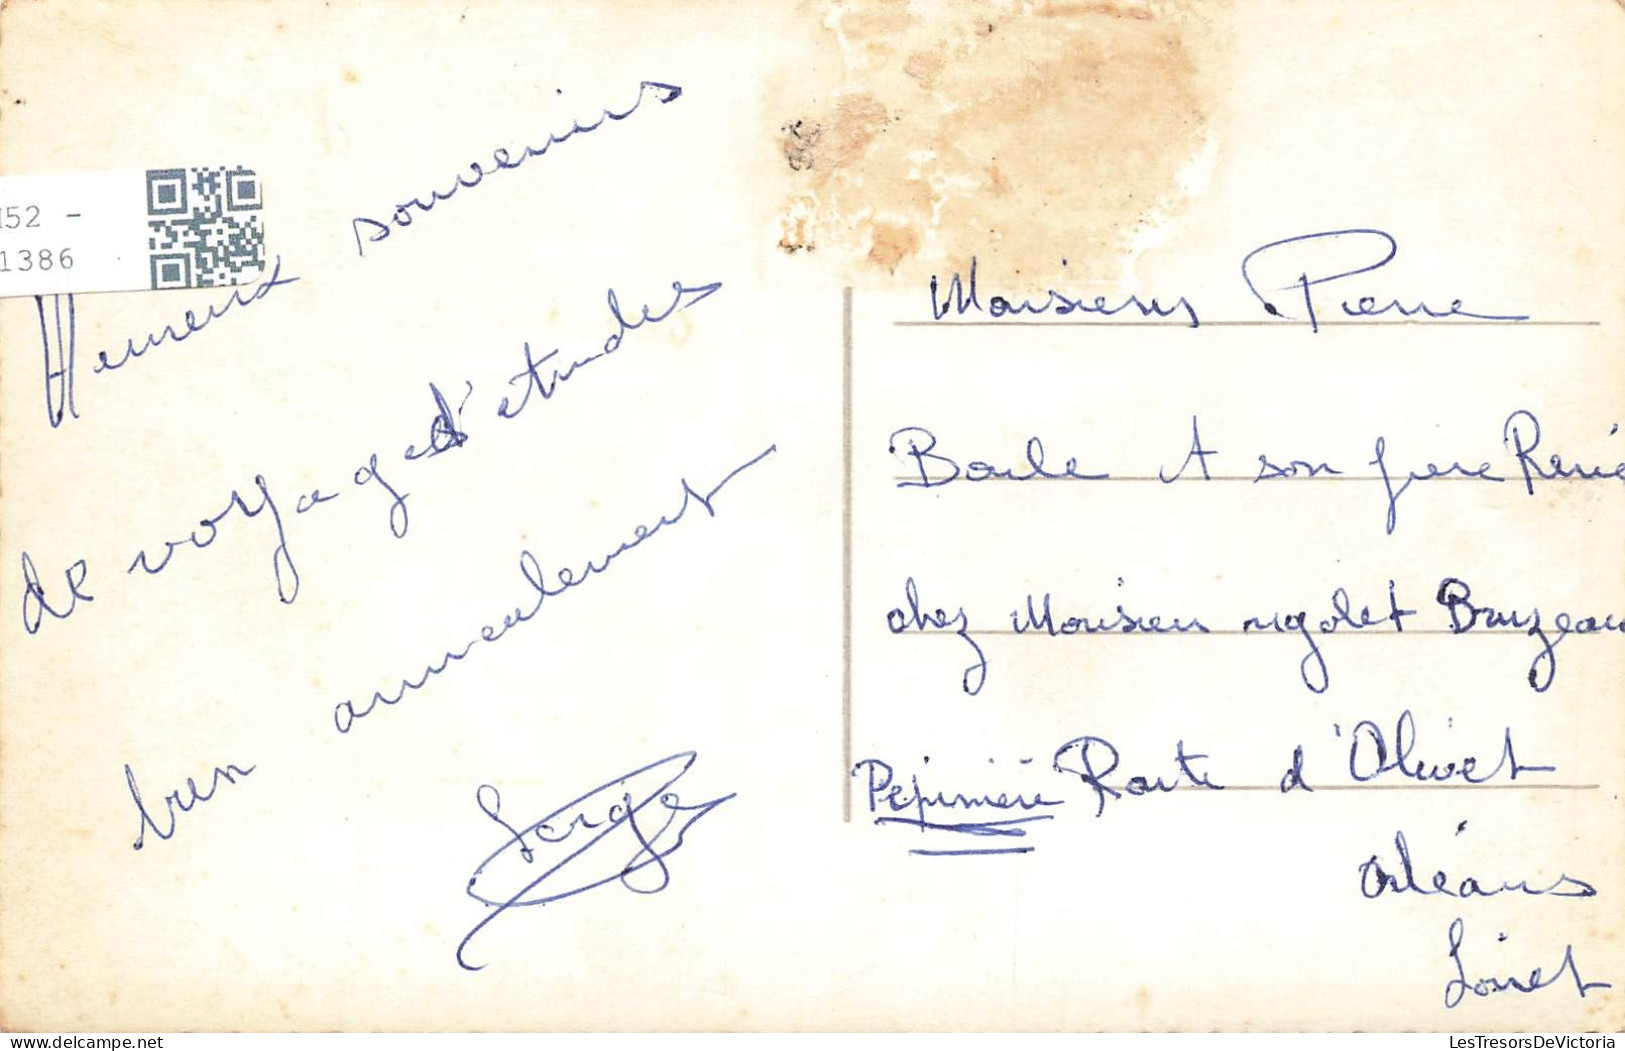 52 -
1386
Heureux souvenirs
de voyage d'études
bien amicalement
Serge
Monsieur Pierre
Boule et son frère René
chez Monsieur rigolet Bruzeau
Pépinière Route d'Olivet
Orléans
Loiret
LesTresorsDeVictoria
delcampe.net